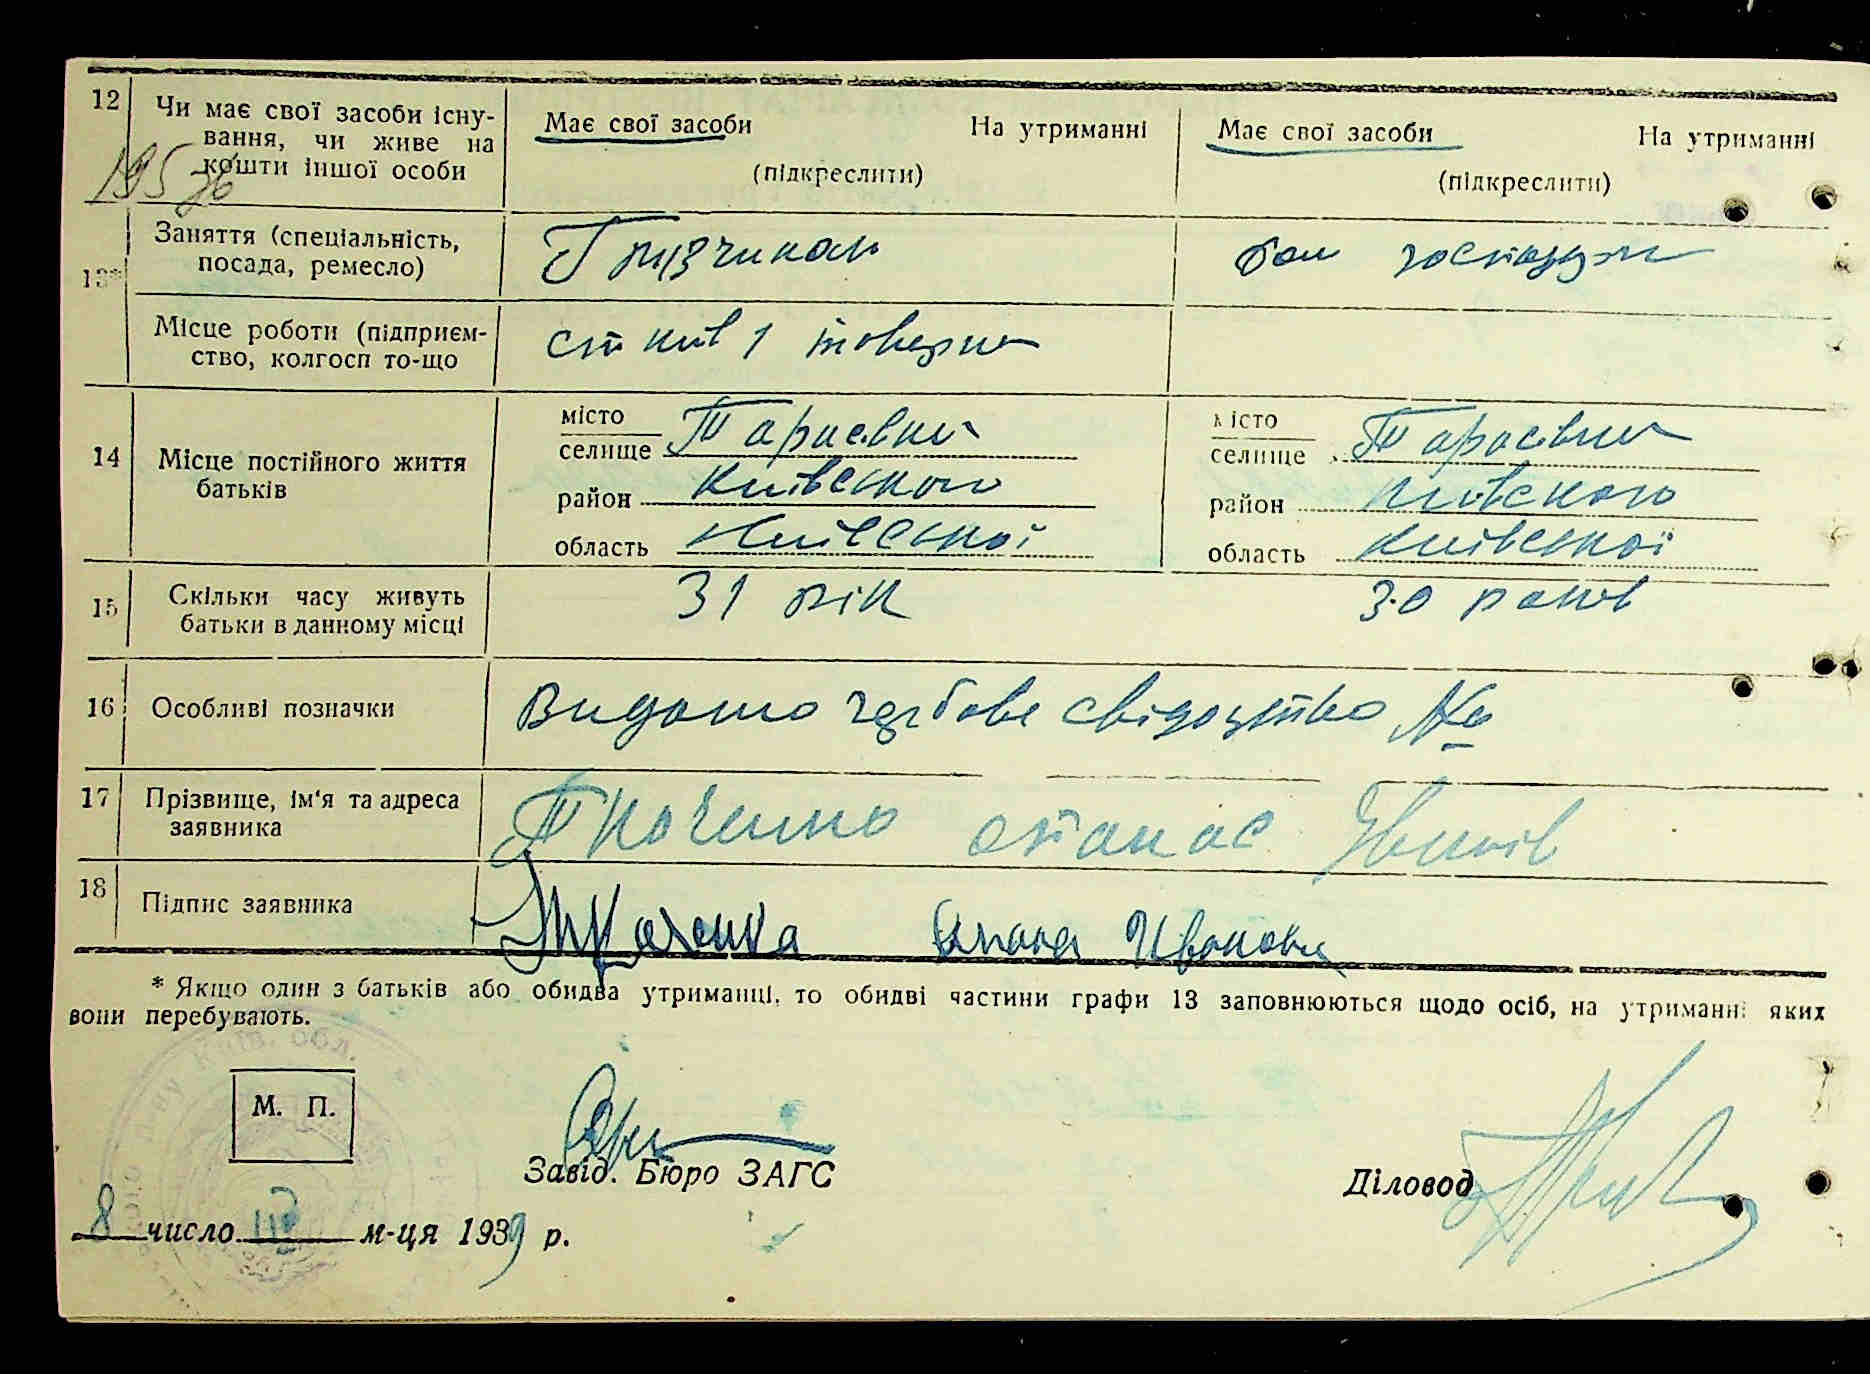 12 Чи має свої засоби існу-
вання, чи живе на
кошти іншої особи
Має свої засоби На утриманні
(підкреслити)
Має свої засоби На утриманні
(підкреслити)
195
13* Заняття (спеціальність,
посада, ремесло)
Грузчиком
дом господарк
Місце роботи (підприєм-
ство, колгосп то-що
ст Київ 1 товарна
14 Місце постійного життя
батьків
місто
селище Тарасівка
район Київського
область Київської
місто
селище Тарасівка
район Київського
область Київської
15 Скільки часу живуть
батьки в данному місці
31 рік
30 років
16 Особливі позначки
Видано гербове свідоцтво №
17 Прізвище, ім'я та адреса
заявника
Ткаченко Опанас
18 Підпис заявника
Ткаченка
* Якщо один з батьків або обидва утриманці, то обидві частини графи 13 заповнюються щодо осіб, на утриманні яких
вони перебувають.
Київ. обл.
М. П.
Завід. Бюро ЗАГС
Діловод
8 число III м-ця 1939 р.